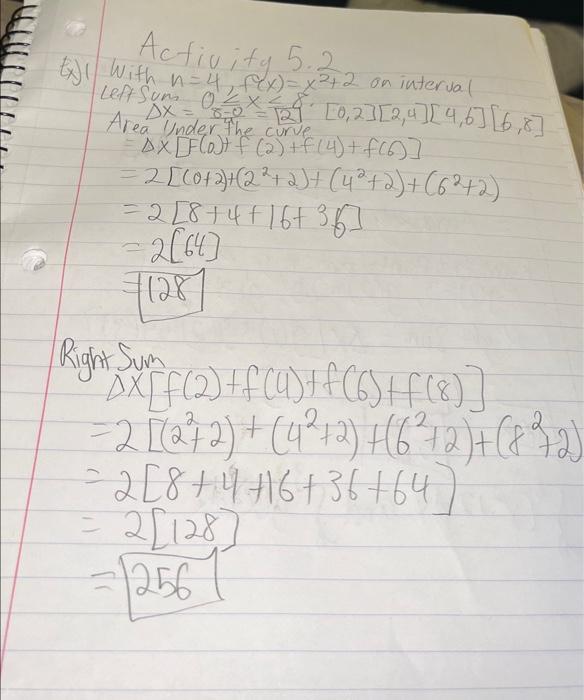 Activity 5.2
Ex) 1 With n=4, f(x)=x²+2 on interval
Left Sum 0 ≤ x ≤ 8.
ΔX = 8-0/4 = [2] [0,2][2,4][4,6][6,8]
Area Under the curve
= ΔX[f(0)+f(2)+f(4)+f(6)]
= 2[(0+2)+(2²+2)+(4²+2)+(6²+2)
= 2[8+4+16+36]
= 2[64]
= 128
Right Sum
ΔX[f(2)+f(4)+f(6)+f(8)]
= 2[(2²+2)+(4²+2)+(6²+2)+(8²+2)
= 2[8+4+16+36+64]
= 2[128]
= 256